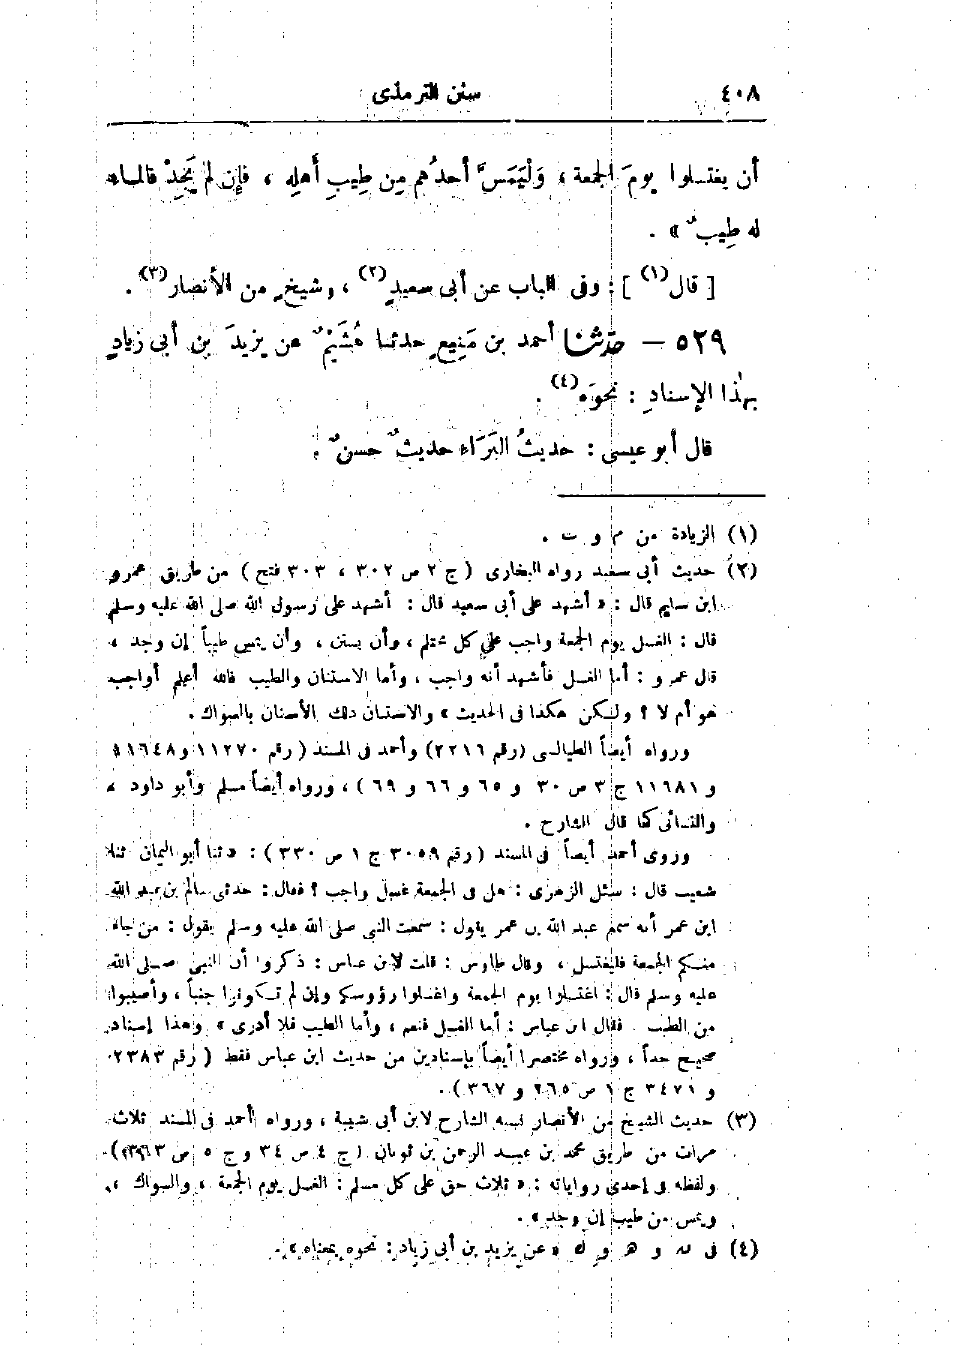 ٤٠٨
سنن الترمذى
أن يغتسلوا يومَ الجمعة ، وَلْيَمَسَّ أحدُهم مِن طِيبِ أهلِه ، فإن لم يَجِدْ فالماء
له طِيبٌ » .
[ قال(١) ] : وفى الباب عن أبى سعيدٍ(٢) ، وشيخٍ من الأنصار(٣) .
٥٢٩ — حدّثنا أحمد بن مَنِيعٍ حدثنا هُشَيْمٌ عن يزيدَ بن أبى زيادٍ
بهذا الإسنادِ : نحوَه(٤) .
قال أبو عيسى : حديثُ البَرَاءِ حديثٌ حسنٌ .
(١) الزيادة من م و ت .
(٢) حديث أبى سعيد رواه البخارى ( ج ٢ ص ٣٠٢ ، ٣٠٣ فتح ) من طريق عمرو
ابن سليم قال : « أشهد على أبى سعيد قال : أشهد على رسول الله صلى الله عليه وسلم
قال : الغسل يوم الجمعة واجب على كل محتلم ، وأن يستن ، وأن يمس طيباً إن وجد ،
قال عمرو : أما الغسل فأشهد أنه واجب ، وأما الاستنان والطيب فالله أعلم أواجب
هو أم لا ؟ ولكن هكذا فى الحديث » والاستنان دلك الأسنان بالسواك .
ورواه أيضاً الطيالسى (رقم ٢٢١٦) وأحمد فى المسند ( رقم ١١٢٧٠ و ١١٦٤٨
و ١١٦٨١ ج ٣ ص ٣٠ و ٦٥ و ٦٦ و ٦٩ ) ، ورواه أيضاً مسلم وأبو داود
والنسائى كما قال الشارح .
وروى أحمد أيضاً فى المسند ( رقم ٣٠٥٩ ج ١ ص ٣٣٠ ) : « ثنا أبو اليمان ثنا
شعيب قال : سئل الزهرى : هل فى الجمعة غسل واجب ؟ فقال : حدثى سالم بن عبد الله
ابن عمر أنه سمع عبد الله بن عمر يقول : سمعت النبى صلى الله عليه وسلم يقول : من جاء
منكم الجمعة فليغتسل ، وقال طاوس : قلت لابن عباس : ذكروا أن النبى صلى الله
عليه وسلم قال : اغتسلوا يوم الجمعة واغسلوا رؤوسكم وإن لم تكونوا جنباً ، وأصيبوا
من الطيب . فقال ابن عباس : أما الغسل فنعم ، وأما الطيب فلا أدرى » وهذا إسناد
صحيح جداً ، ورواه مختصرا أيضاً بإسنادين من حديث ابن عباس فقط ( رقم ٢٣٨٣
و ٣٤٧١ ج ١ ص ٢٦٥ و ٣٦٧ ) .
(٣) حديث الشيخ من الأنصار نسبه الشارح لابن أبى شيبة ، ورواه أحمد فى المسند ثلاث
مرات من طريق محمد بن عبد الرحمن بن ثوبان ( ج ٤ ص ٣٤ و ج ٥ ص ٣٦٣ ) .
ولفظه فى إحدى رواياته : « ثلاث حق على كل مسلم : الغسل يوم الجمعة ، والسواك ،
ويمس من طيب إن وجد » .
(٤) فى ﻫ و ك « عن يزيد بن أبى زياد : نحوه بمعناه » .